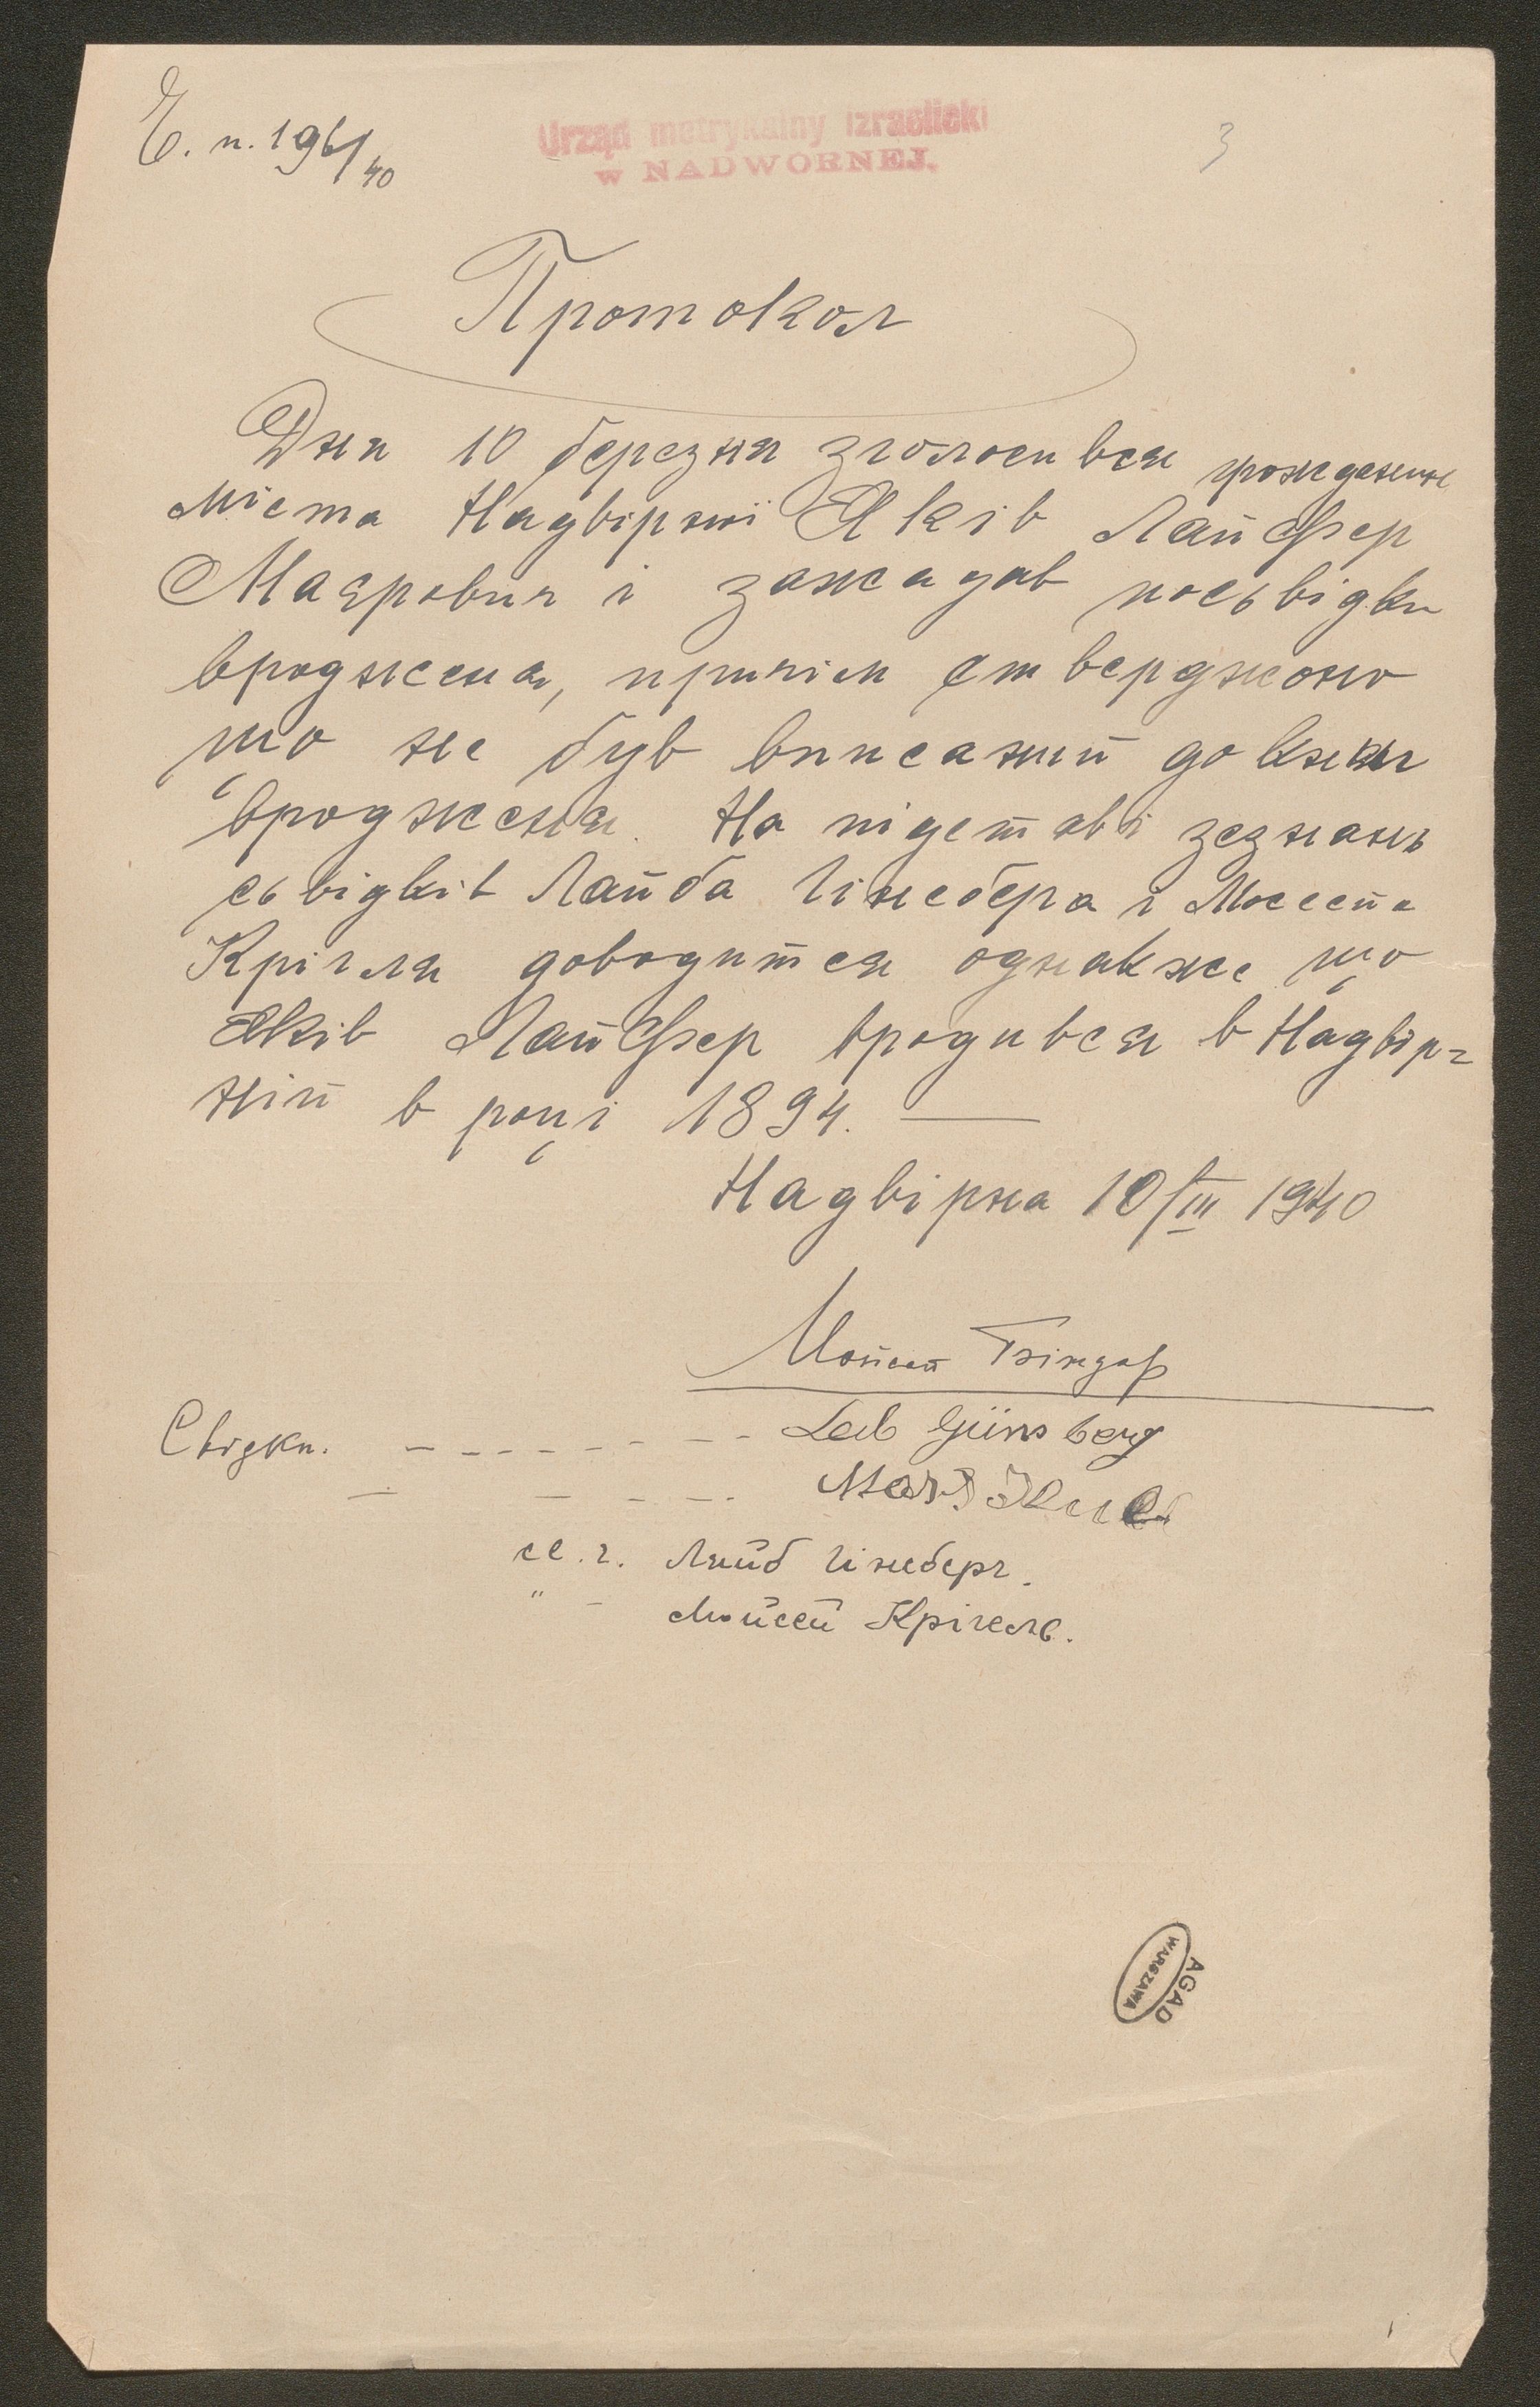 Е. п. 196/40
Urząd metrykalny izraelicki
w NADWORNEJ.
3
Протокол
Дня 10 березня зголосився
міста Надвірної Яків Лайфер
Маєрович і зажадав посьвідки
вродженя, причім стверджоно
що не був вписаний до книг
вродженя. На підставі зезнань
сьвідків Лайба Гінсберга і Мойсея
Крігля доводится однакже що
Яків Лайфер вродився в Надвір=
ній в році 1894. —
Надвірна 10/III 1940
Мойсей
Свідки. - - - - - - - - Leib Günsberg
— — - - -.
Лейб Гінсберг.
" - Мойсей Крігель.
AGAD
WARSZAWA